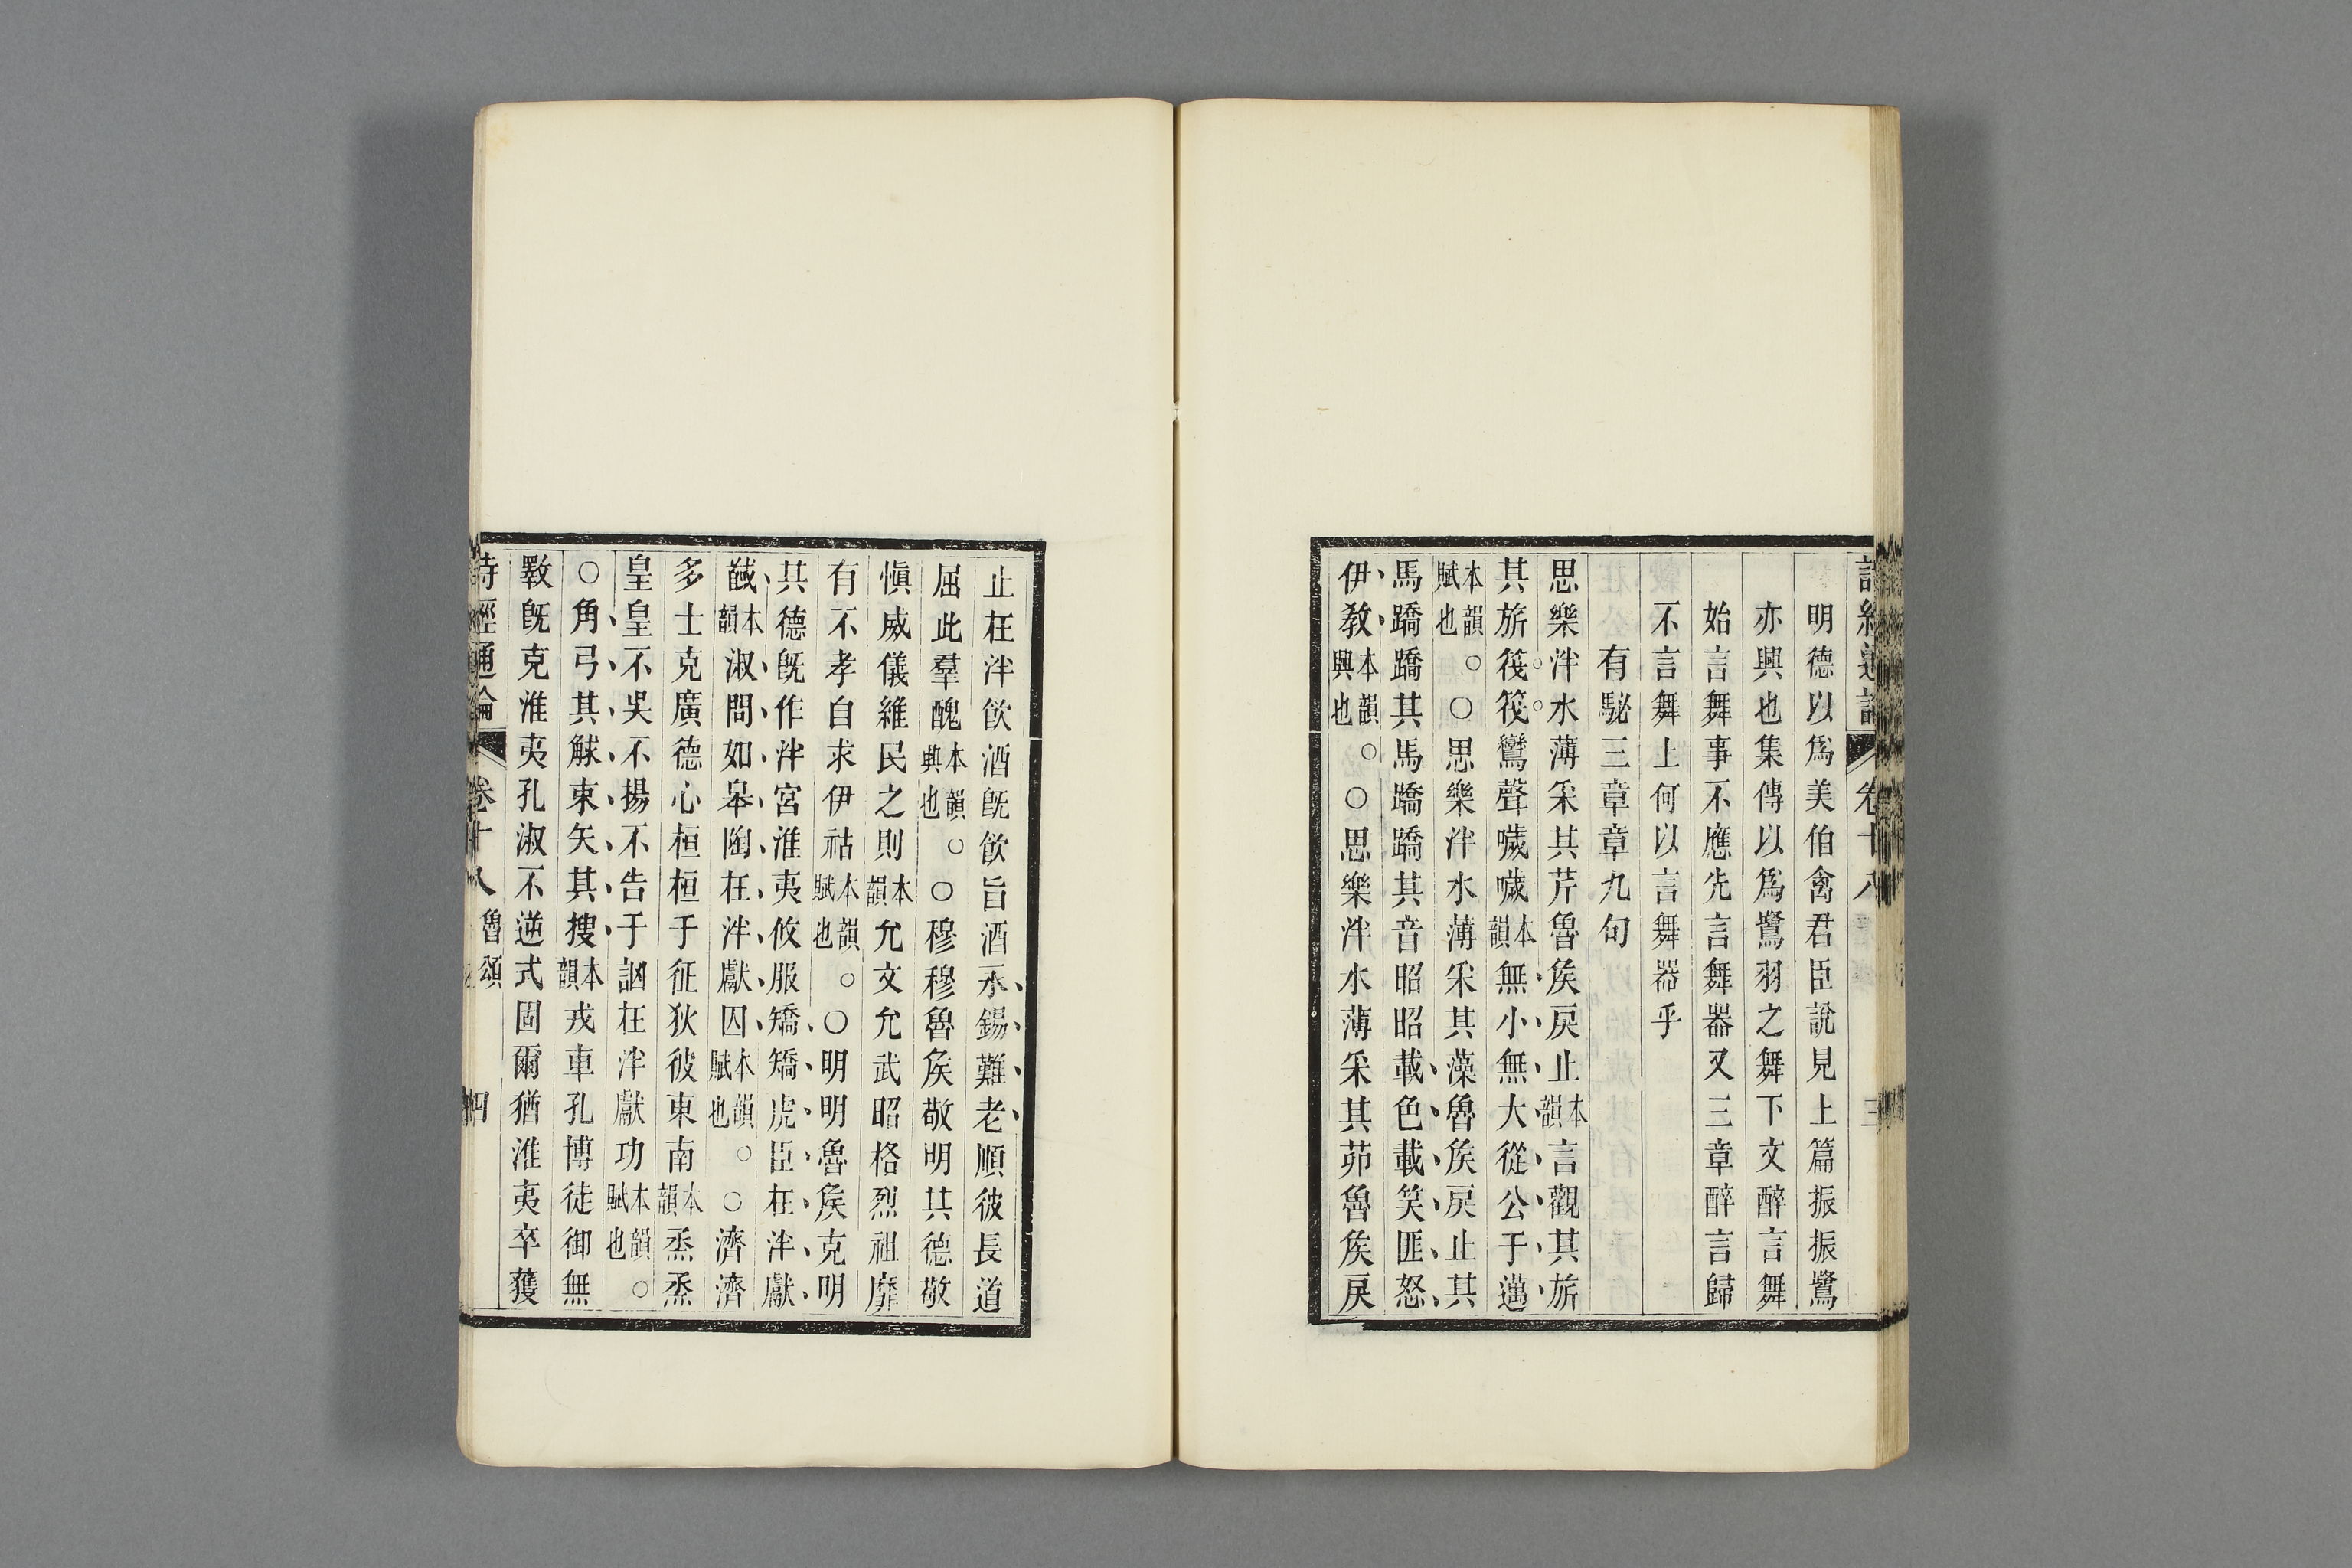 詩經通論 卷十八 三
明德以爲美伯禽君臣說見上篇振振鷺
亦興也集傳以爲鷺羽之舞下文醉言舞
始言舞事不應先言舞器又三章醉言歸
不言舞上何以言舞器乎
有駜三章章九句
思樂泮水薄采其芹魯矦戾止本韻言觀其旂
其旂筏筏鸞聲噦噦本韻無小無大從公于邁
本韻賦也○○思樂泮水薄采其藻魯矦戾止其
馬蹻蹻其馬蹻蹻其音昭昭載色載笑匪怒
伊教本韻興也○○思樂泮水薄采其茆魯矦戾
止在泮飲酒旣飲旨酒永錫難老順彼長道
屈此羣醜本韻興也○○穆穆魯矦敬明其德敬
愼威儀維民之則本韻允文允武昭格烈祖靡
有不孝自求伊祜本韻賦也○○明明魯矦克明
其德旣作泮宮淮夷攸服矯矯虎臣在泮獻
馘本韻淑問如皋陶在泮獻囚本韻賦也○○濟濟
多士克廣德心桓桓于征狄彼東南本韻烝烝
皇皇不吳不揚不告于訩在泮獻功本韻賦也○
○角弓其觩束矢其搜本韻戎車孔博徒御無
斁旣克淮夷孔淑不逆式固爾猶淮夷卒獲
詩經通論 卷十八 魯頌 四